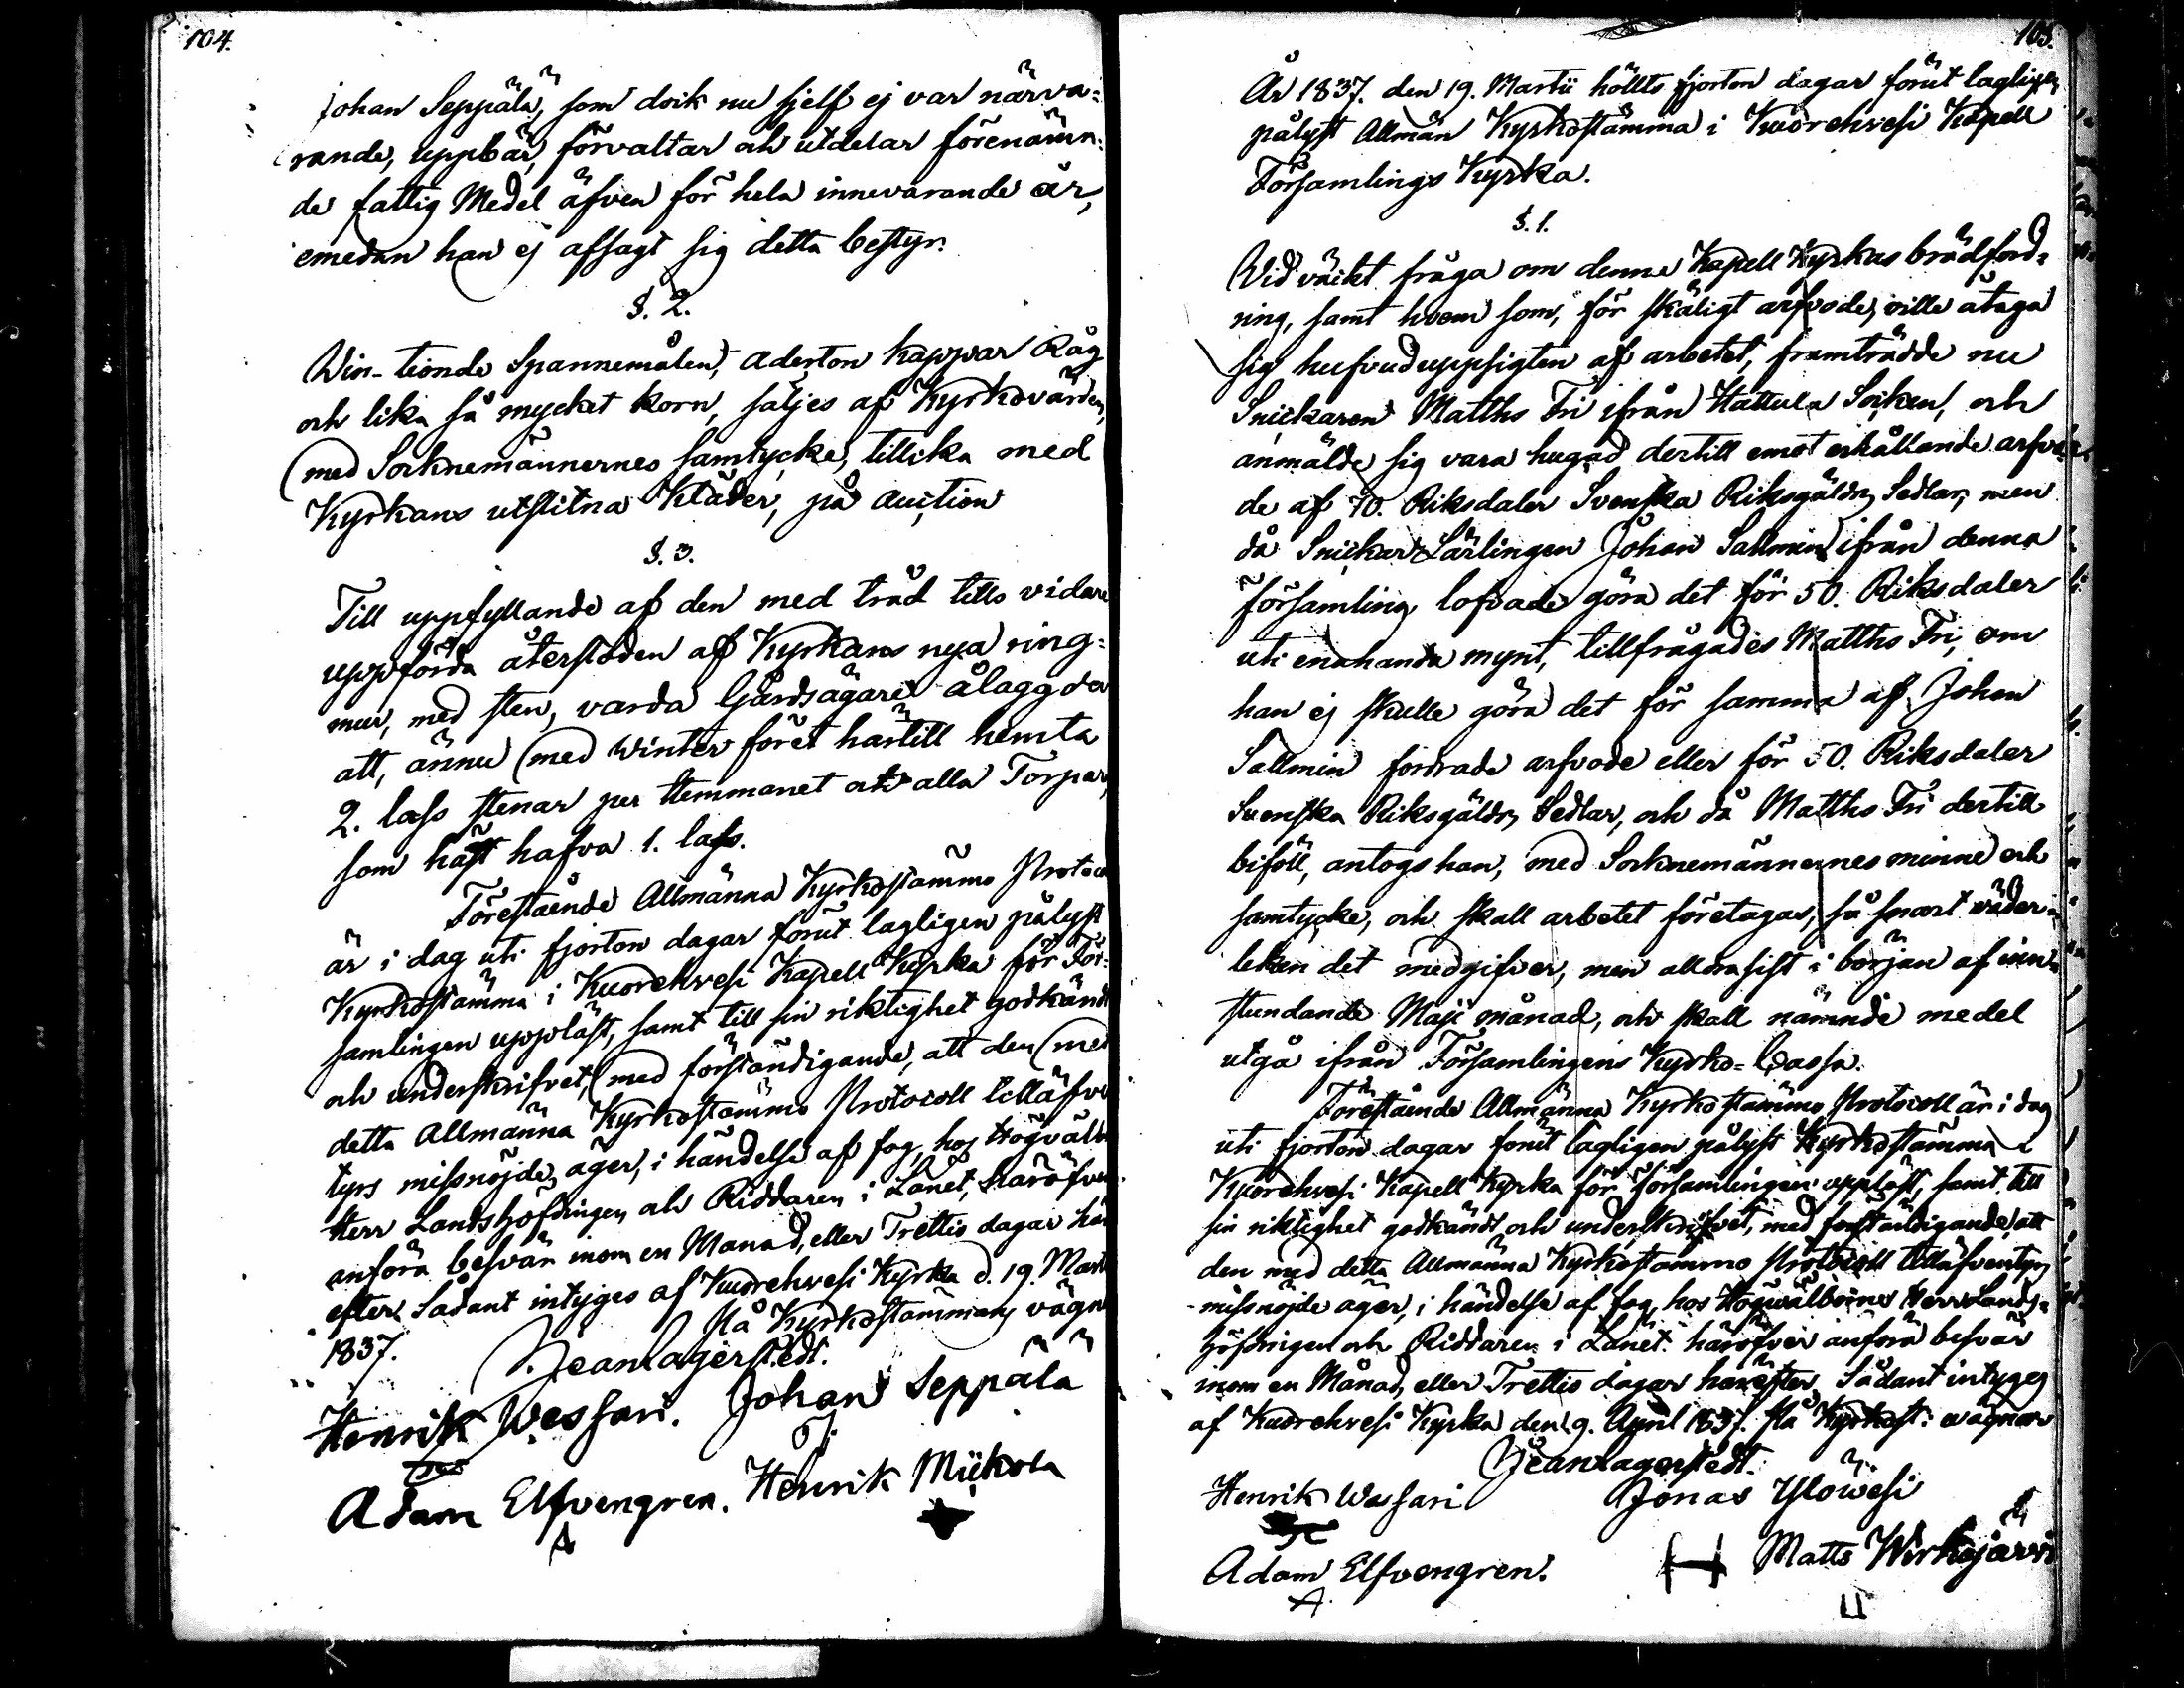 104.
Johan Seppälä, som dock nu sjelf ej var närva=
rande, uppbär, förvaltar och utdelar förenämn=
de fattig Medel äfven för hela innevarande år,
emedan han ej afsagt sig detta bestyr.
§. 2.
Vin-tionde Spannemålen, aderton kappar Råg
och lika så mycket korn, säljes af Kyrkovärden,
med Socknemännernes samtycke, tillika med
Kyrkans utslitna Kläder, på auction
§. 3.
Till uppfyllande af den med träd tills vidare
uppförda återstoden af Kyrkans nya ring=
mur, med sten, varda Gårdsägare ålaggda
att, ännu med Winterföret härtill hemta
2. lass stenar per Hemmanet och alla Torpar,
som häst hafva 1. lass.
Förestående Allmänna Kyrkostämmo Protoc
är i dag uti fjorton dagar förut lagligen pålyst
Kyrkostämma i Kuorehvesi Kapell Kyrka för För=
samlingen uppläst, samt till sin riktighet godkändt
och underskrifvet, med förständigande, att den med
detta Allmänna Kyrkostämmo Protocoll tilläfven
tyrs missnöjde, äger, i händelse af fog, hos Högvälb
Herr Landshöfdingen och Riddaren i Länet, häröfver
anföra besvär inom en Månad, eller Trettio dagar här
efter. Sådant intyges af Kuorehvesi Kyrka d. 19. Mart
1837. På Kyrkostämmans vägn
Jean Lagerstedt.
Henrik Wessari. Johan Seppälä
Adam Elfvengren. Henrik Mickola
105.
År 1837. den 19. Martii höllts fjorton dagar förut lagligen
pålyst Allmän Kyrkostämma i Kuorehvesi Kapell
Församlings Kyrka.
§. 1.
Vid väckt fråga om denne Kapell Kyrkas brädford=
ring, samt hvem som, för skäligt arfvode, ville åtaga
sig hufvuduppsigten af arbetet, framträdde nu
Snickaren Matths Fri ifrån Hattula Socken, och
anmälde sig vara hugad dertill emot erhållande arfvo=
de af 70. Riksdaler Svenska Riksgälds Sedlar, men
då Snickar Lärlingen Johan Sallmin ifrån denna
församling lofvade göra det för 50. Riksdaler
uti enahanda mynt, tillfrågades Matths Fri, om
han ej skulle göra det för samma af Johan
Sallmin fordrade arfvode eller för 50. Riksdaler
Svenska Riksgälds Sedlar, och då Matths Fri dertill
biföll, antogs han, med Socknemännernes minne och
samtycke, och skall arbetet företagas, så snart väder=
leken det medgifver, men alldrasist i början af inn=
stundande Maji månad, och skall nämnde medel
utgå ifrån Församlingens Kyrko=Cassa.
Förestående Allmänna Kyrkostämmo Protocoll är i dag
uti fjorton dagar förut lagligen pålyst Kyrkostämma i
Kuorehvesi Kapell Kyrka för församlingen uppläst, samt till
sin riktighet godkändt och underskrifvet, med förständigande, att
den med detta Allmänna Kyrkostämmo Protocoll tilläfventyrs
missnöjde äger, i händelse af fog, hos Högwälborne Herr Lands=
höfdingen och Riddaren i Länet häröfver anföra besvär
inom en Månad eller Trettio dagar härefter. Sådant intyges
af Kuorehvesi Kyrka den 9. April 1837. På Kyrkost: wägnar
Jean Lagerstedt.
Henrik Wessari Jonas Ylöwesi
Adam Elfvengren. Matts Wirkajärvi